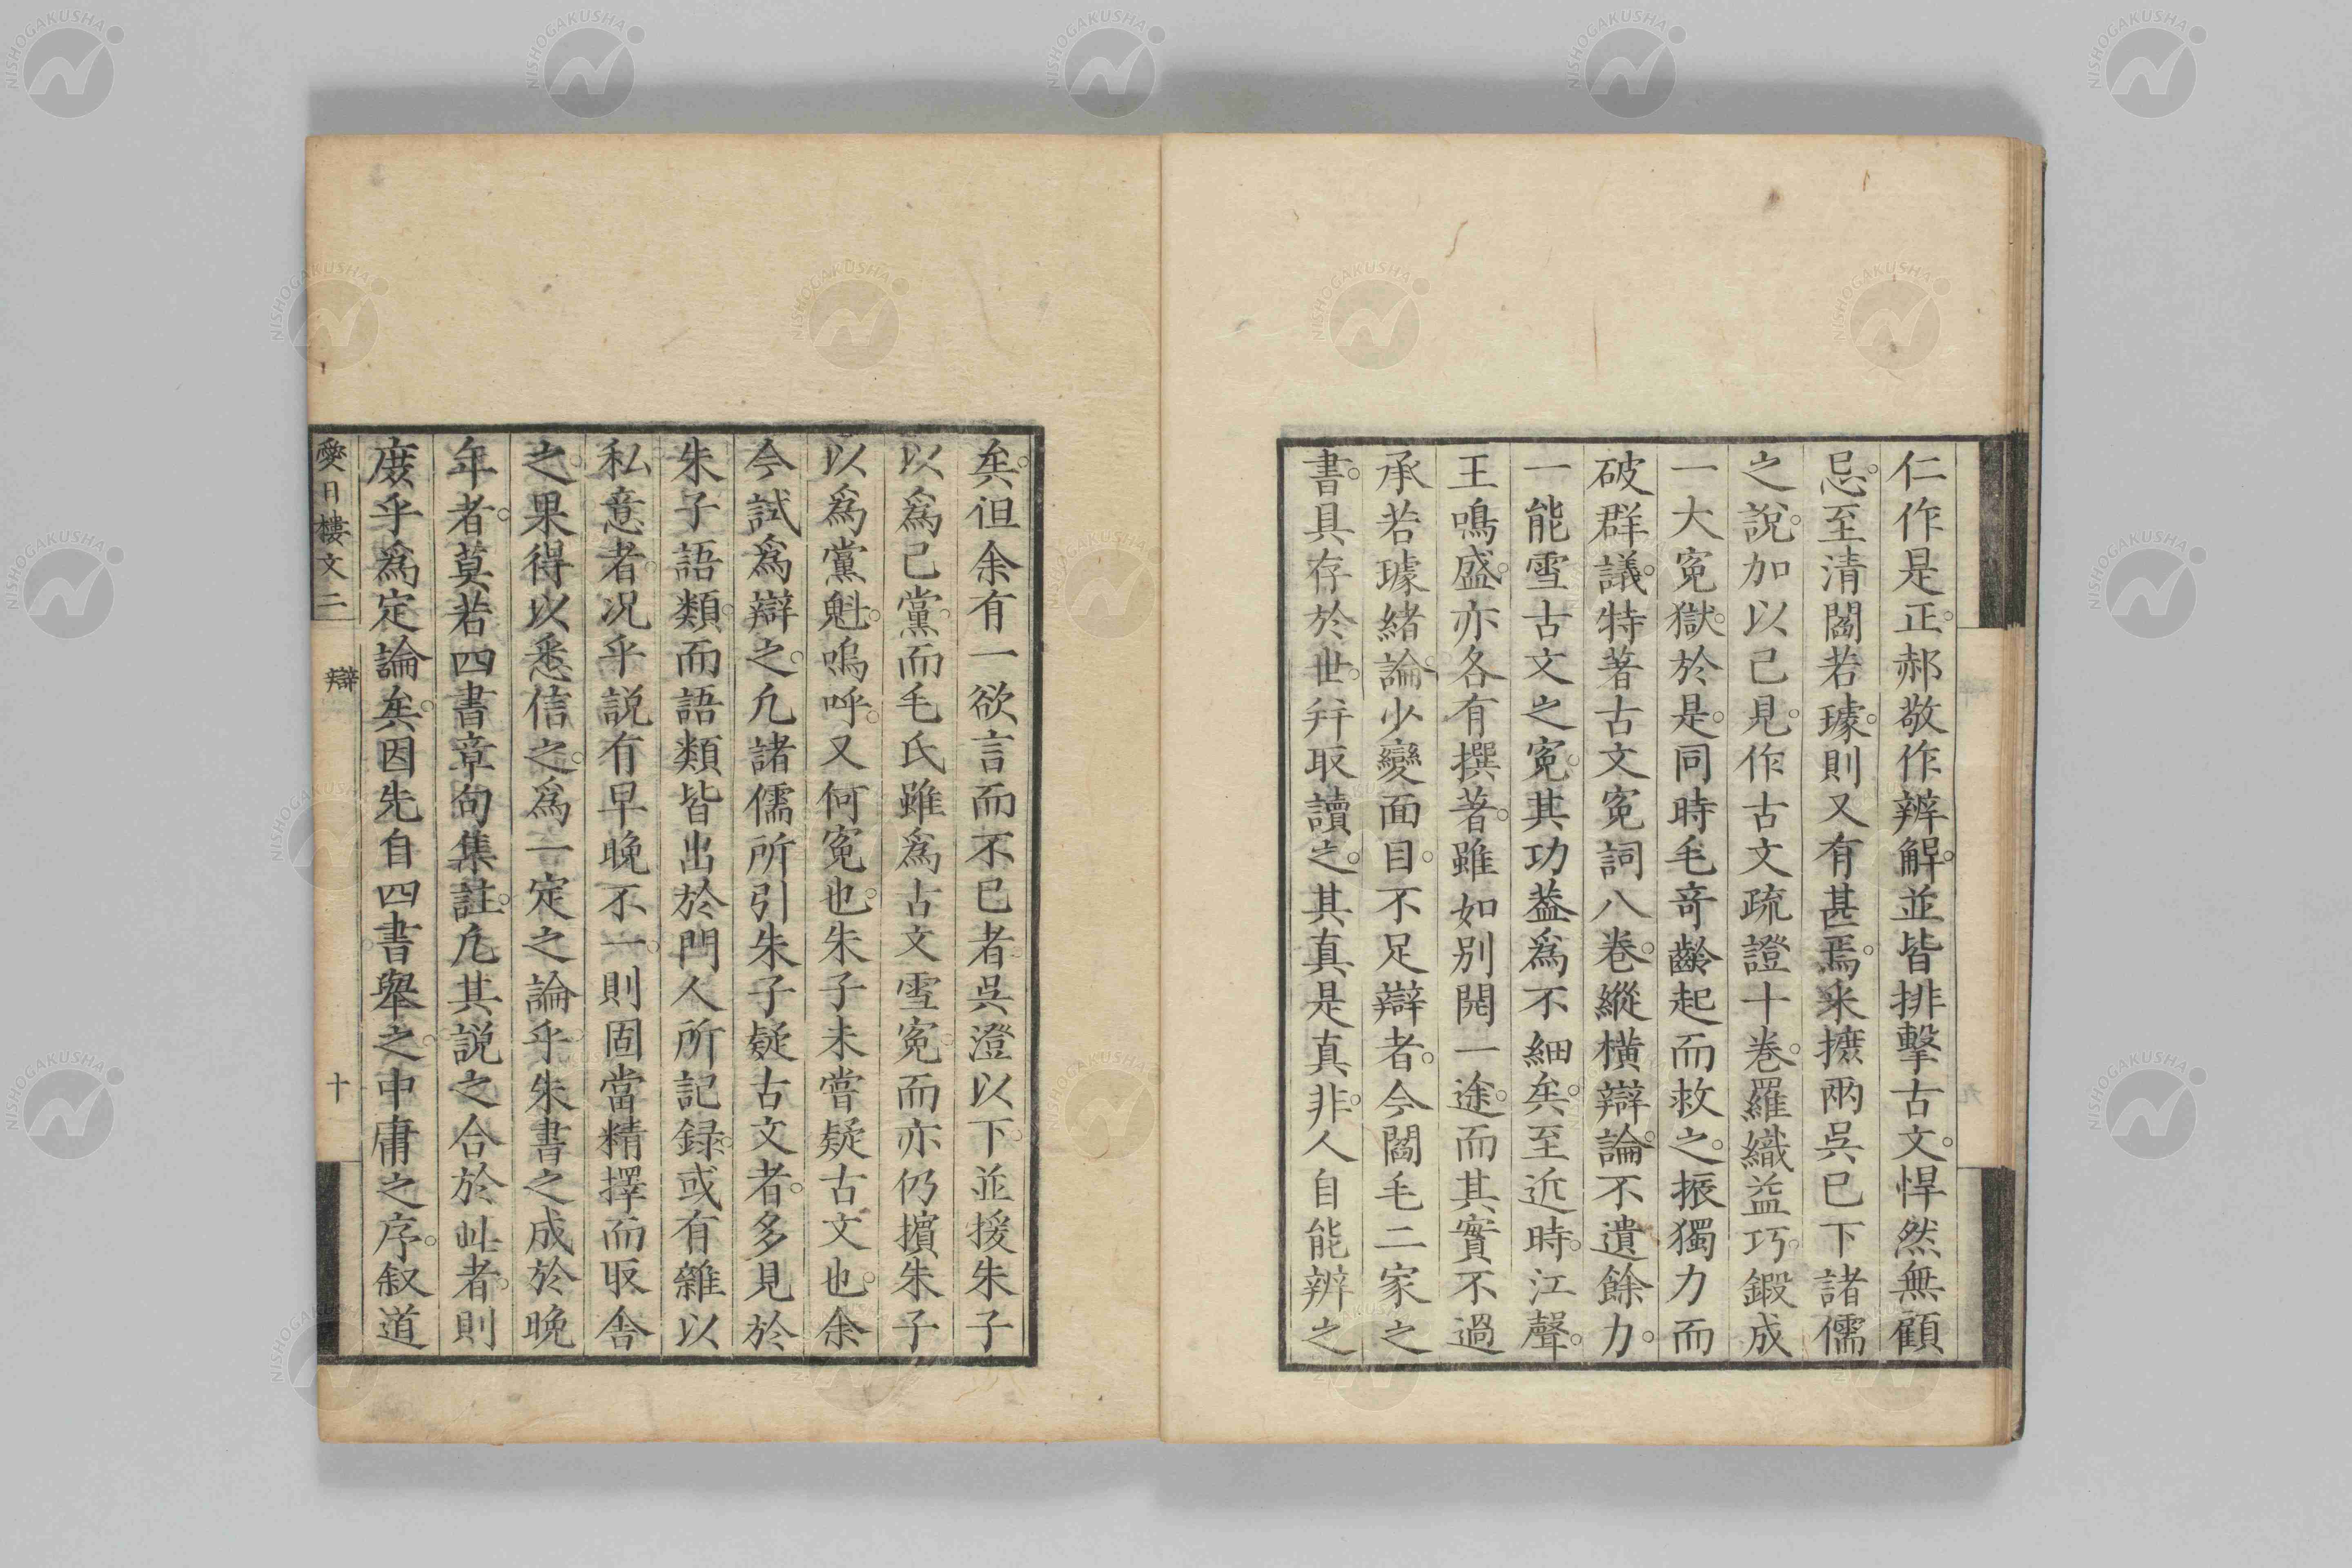 仁作是正。郝敬作辨解。並皆排擊古文。悍然無顧
忌。至清閻若璩。則又有甚焉。采摭兩吳已下諸儒
之說。加以己見。作古文疏證十卷。羅織益巧。鍛成
一大冤獄。於是。同時毛奇齡起而救之。振獨力而
破群議。特著古文冤詞八卷。縱橫辯論。不遺餘力。
一能雪古文之冤。其功益爲不細矣。至近時。江聲。
王鳴盛。亦各有撰著。雖如別開一途。而其實不過
承若璩緒論。少變面目。不足辯者。今閻毛二家之
書。具存於世。幷取讀之。其真是真非。人自能辨之
矣。但余有一欲言而不已者。吳澄以下。並援朱子
以爲己黨。而毛氏雖爲古文雪冤。而亦仍擯朱子
以爲黨魁。嗚呼。又何冤也。朱子未嘗疑古文也。余
今試爲辯之。凡諸儒所引朱子疑古文者。多見於
朱子語類。而語類皆出於門人所記録。或有雜以
私意者。况乎說有早晚不一。則固當精擇而取舍
之。果得以悉信之。爲一定之論乎。朱書之成於晚
年者。莫若四書章句集註。凡其說之合於此者。則
庶乎爲定論矣。因先自四書擧之。中庸之序。叙道
愛日樓文二 辯 十
NISHOGAKUSHA